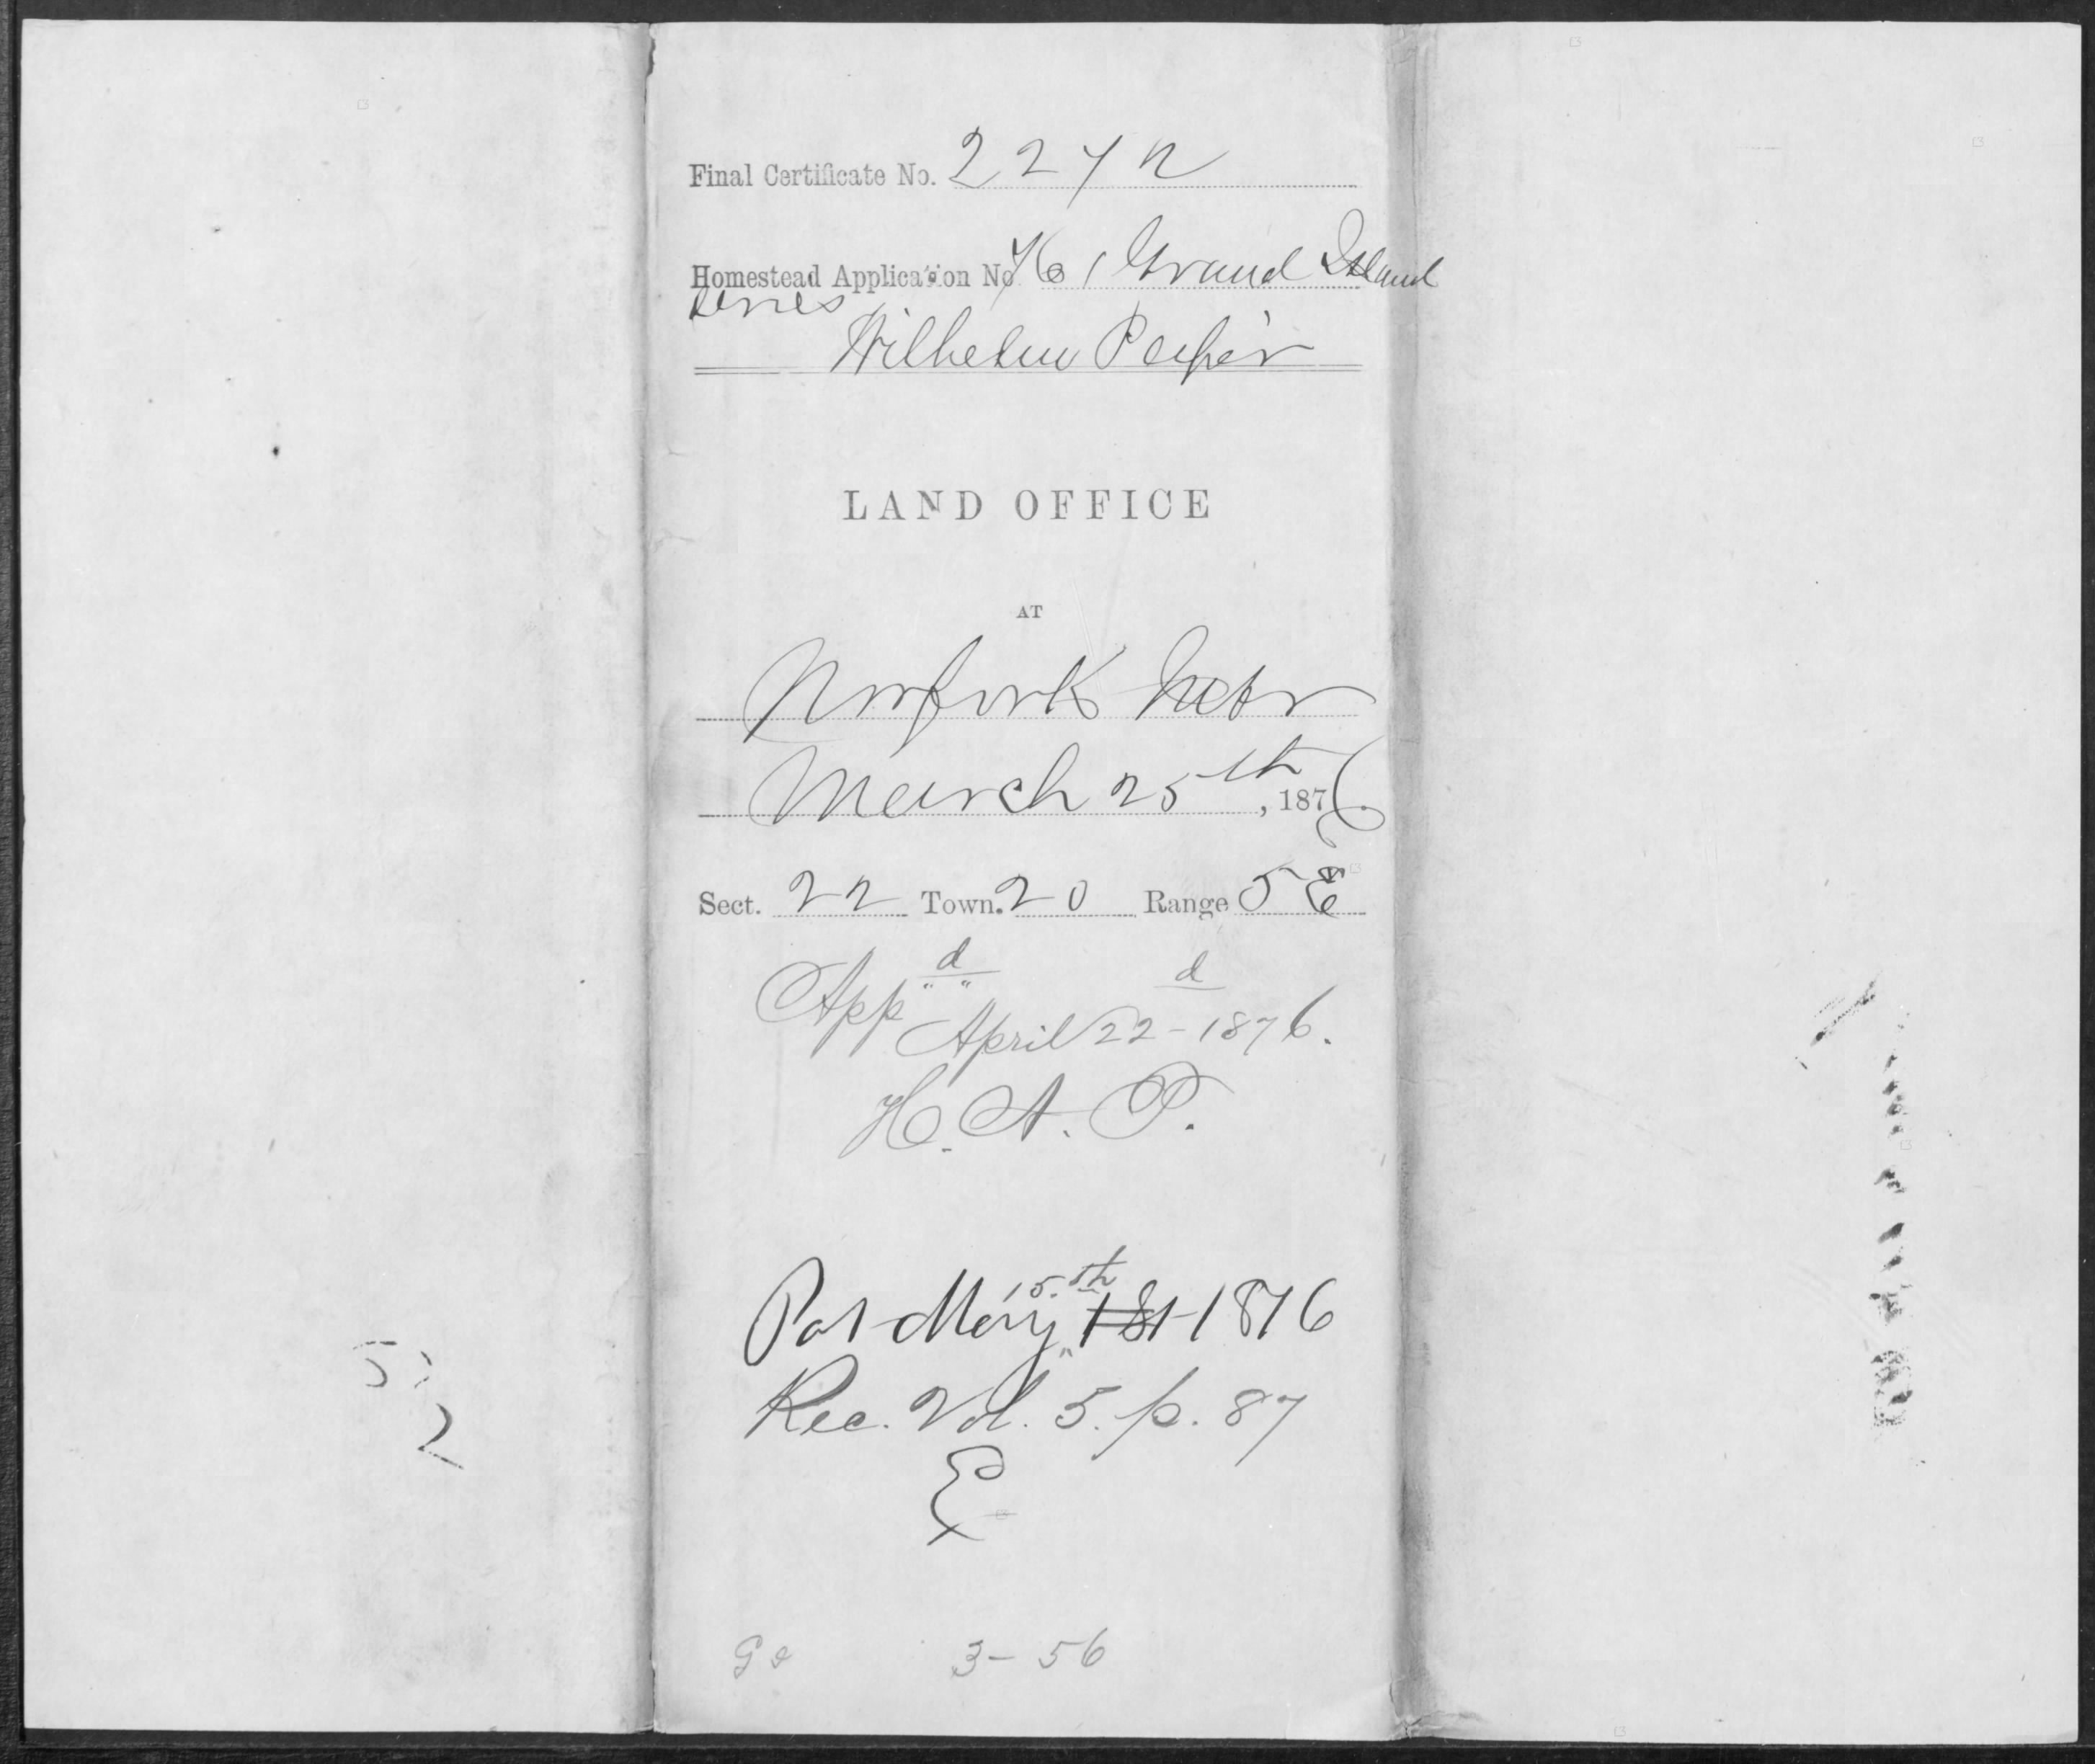 Final Certificate No. 2272
Homestead Application No 761 Grand Island
Series
Wilhelm Peper
LAND OFFICE
AT
Norfork Nebr
March 25th, 1876
Sect. 22 Town. 20 Range 5 E
Appd
April 22d - 1876.
H. A. P.
Pat May 15th 1st 1876
Rec. Vol. 5. p. 87
E
3 - 56
52